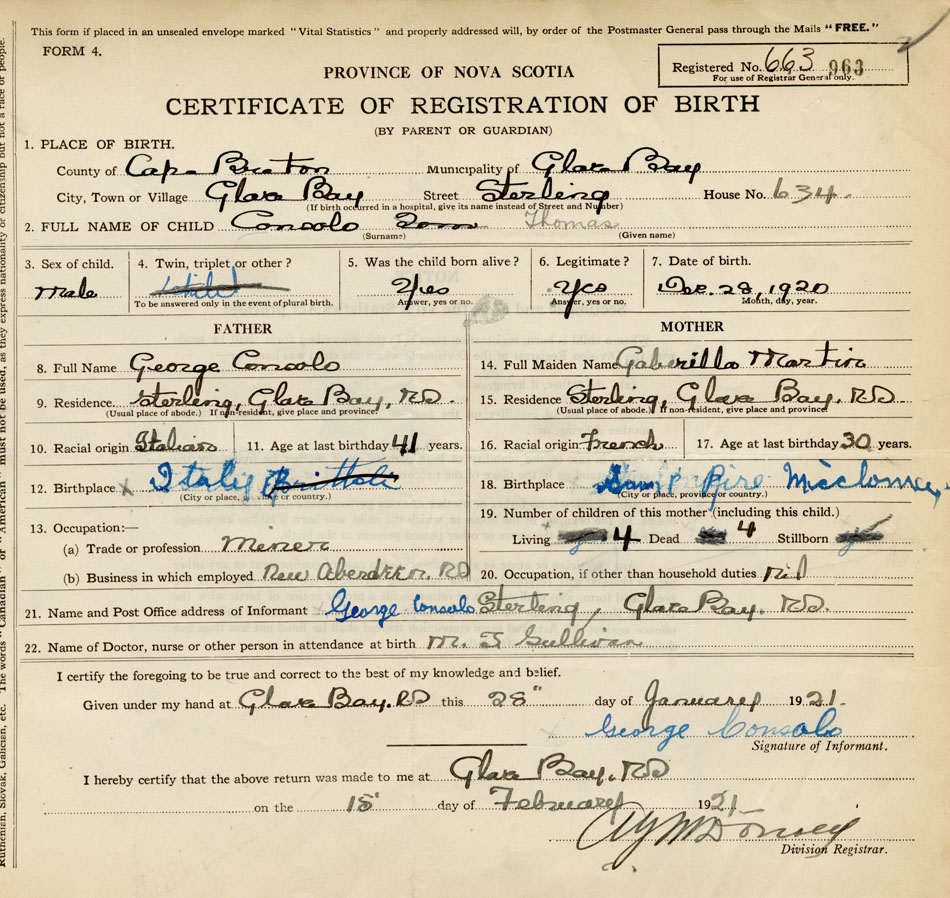 This form if placed in an unsealed envelope marked "Vital Statistics" and properly addressed will, by order of the Postmaster General pass through the Mails "FREE."
FORM 4.
Registered No. 663 963
For use of Registrar General only.
PROVINCE OF NOVA SCOTIA
CERTIFICATE OF REGISTRATION OF BIRTH
(BY PARENT OR GUARDIAN)
1. PLACE OF BIRTH.
County of Cape Breton Municipality of Glace Bay
City, Town or Village Glace Bay Street Sterling House No. 634.
(If birth occurred in a hospital, give its name instead of Street and Number)
2. FULL NAME OF CHILD Consolo Tom Thomas
(Surname) (Given name)
3. Sex of child. 4. Twin, triplet or other? 5. Was the child born alive? 6. Legitimate? 7. Date of birth.
Male Yes Yes Dec. 28, 1920
To be answered only in the event of plural birth. Answer, yes or no. Answer, yes or no. Month, day, year.
FATHER MOTHER
8. Full Name George Consolo 14. Full Maiden Name Gaberilla Martin
9. Residence Sterling, Glace Bay, RD. 15. Residence Sterling, Glace Bay. RD.
(Usual place of abode.) If non-resident, give place and province) (Usual place of abode.) If non-resident, give place and province)
10. Racial origin Italian 11. Age at last birthday 41 years. 16. Racial origin French 17. Age at last birthday 30 years.
12. Birthplace x Italy 18. Birthplace Pire Micclomey.
(City or place, province or country.) (City or place, province or country.)
13. Occupation:—
19. Number of children of this mother (including this child.)
(a) Trade or profession Miner
Living 4 Dead 4 Stillborn
(b) Business in which employed New Aberdeen. RD 20. Occupation, if other than household duties Nil
21. Name and Post Office address of Informant George Consolo Sterling, Glace Bay. RD.
22. Name of Doctor, nurse or other person in attendance at birth M. T Sullivan
I certify the foregoing to be true and correct to the best of my knowledge and belief.
Given under my hand at Glace Bay. RD this 28" day of January 1921.
George Consolo
Signature of Informant.
I hereby certify that the above return was made to me at Glace Bay. RD
on the 15 day of February 1921
Division Registrar.
Ruthenian, Slovak, Galician, etc. The words "Canadian" or "American" must not be used, as they express nationality or citizenship but not a race or people.